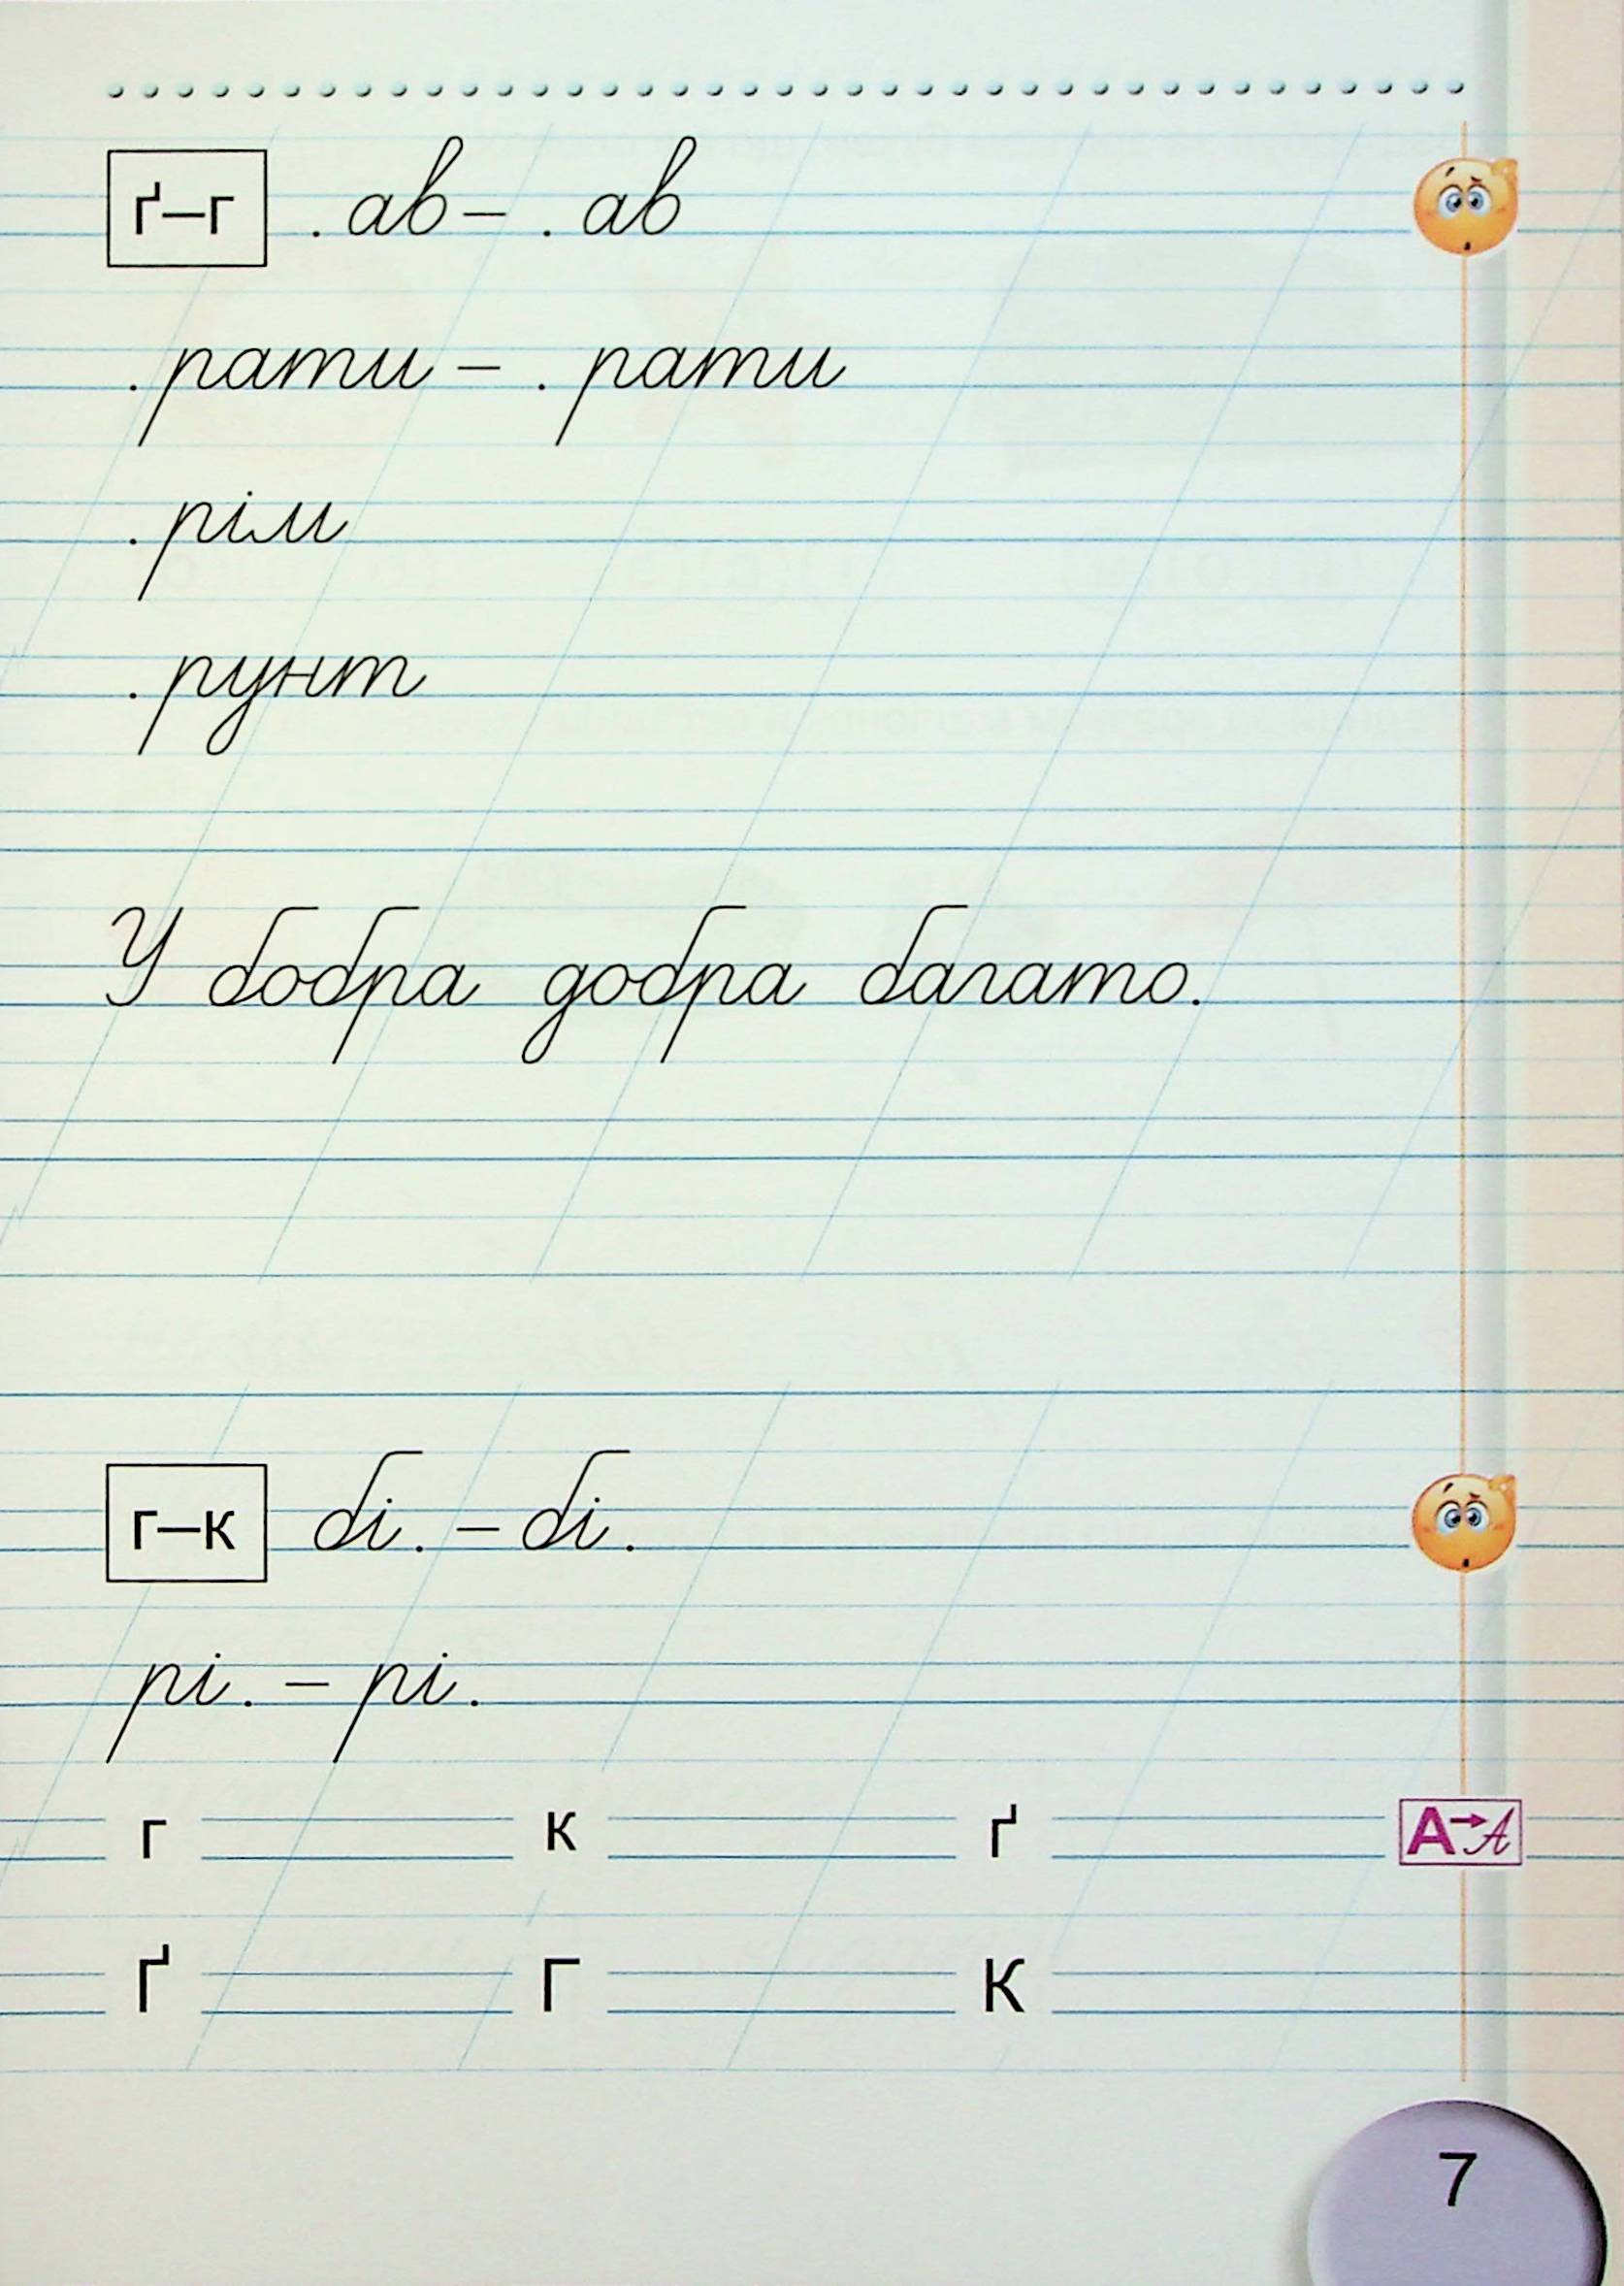 ґ–г . ав – . ав
. рати – . рати
. рім
. рунт
У бобра добра багато.
г–к бі . – бі .
рі . – рі .
г к ґ А→А
Ґ Г К
7